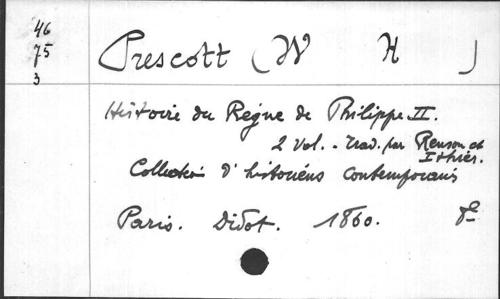 46
75
3
Prescott (W H )
Histoire du Règne de Philippe II.
2 Vol. - Trad. par Renson et
Ithier.
Collection d'historiens contemporains
Paris. Didot. 1860. 8º